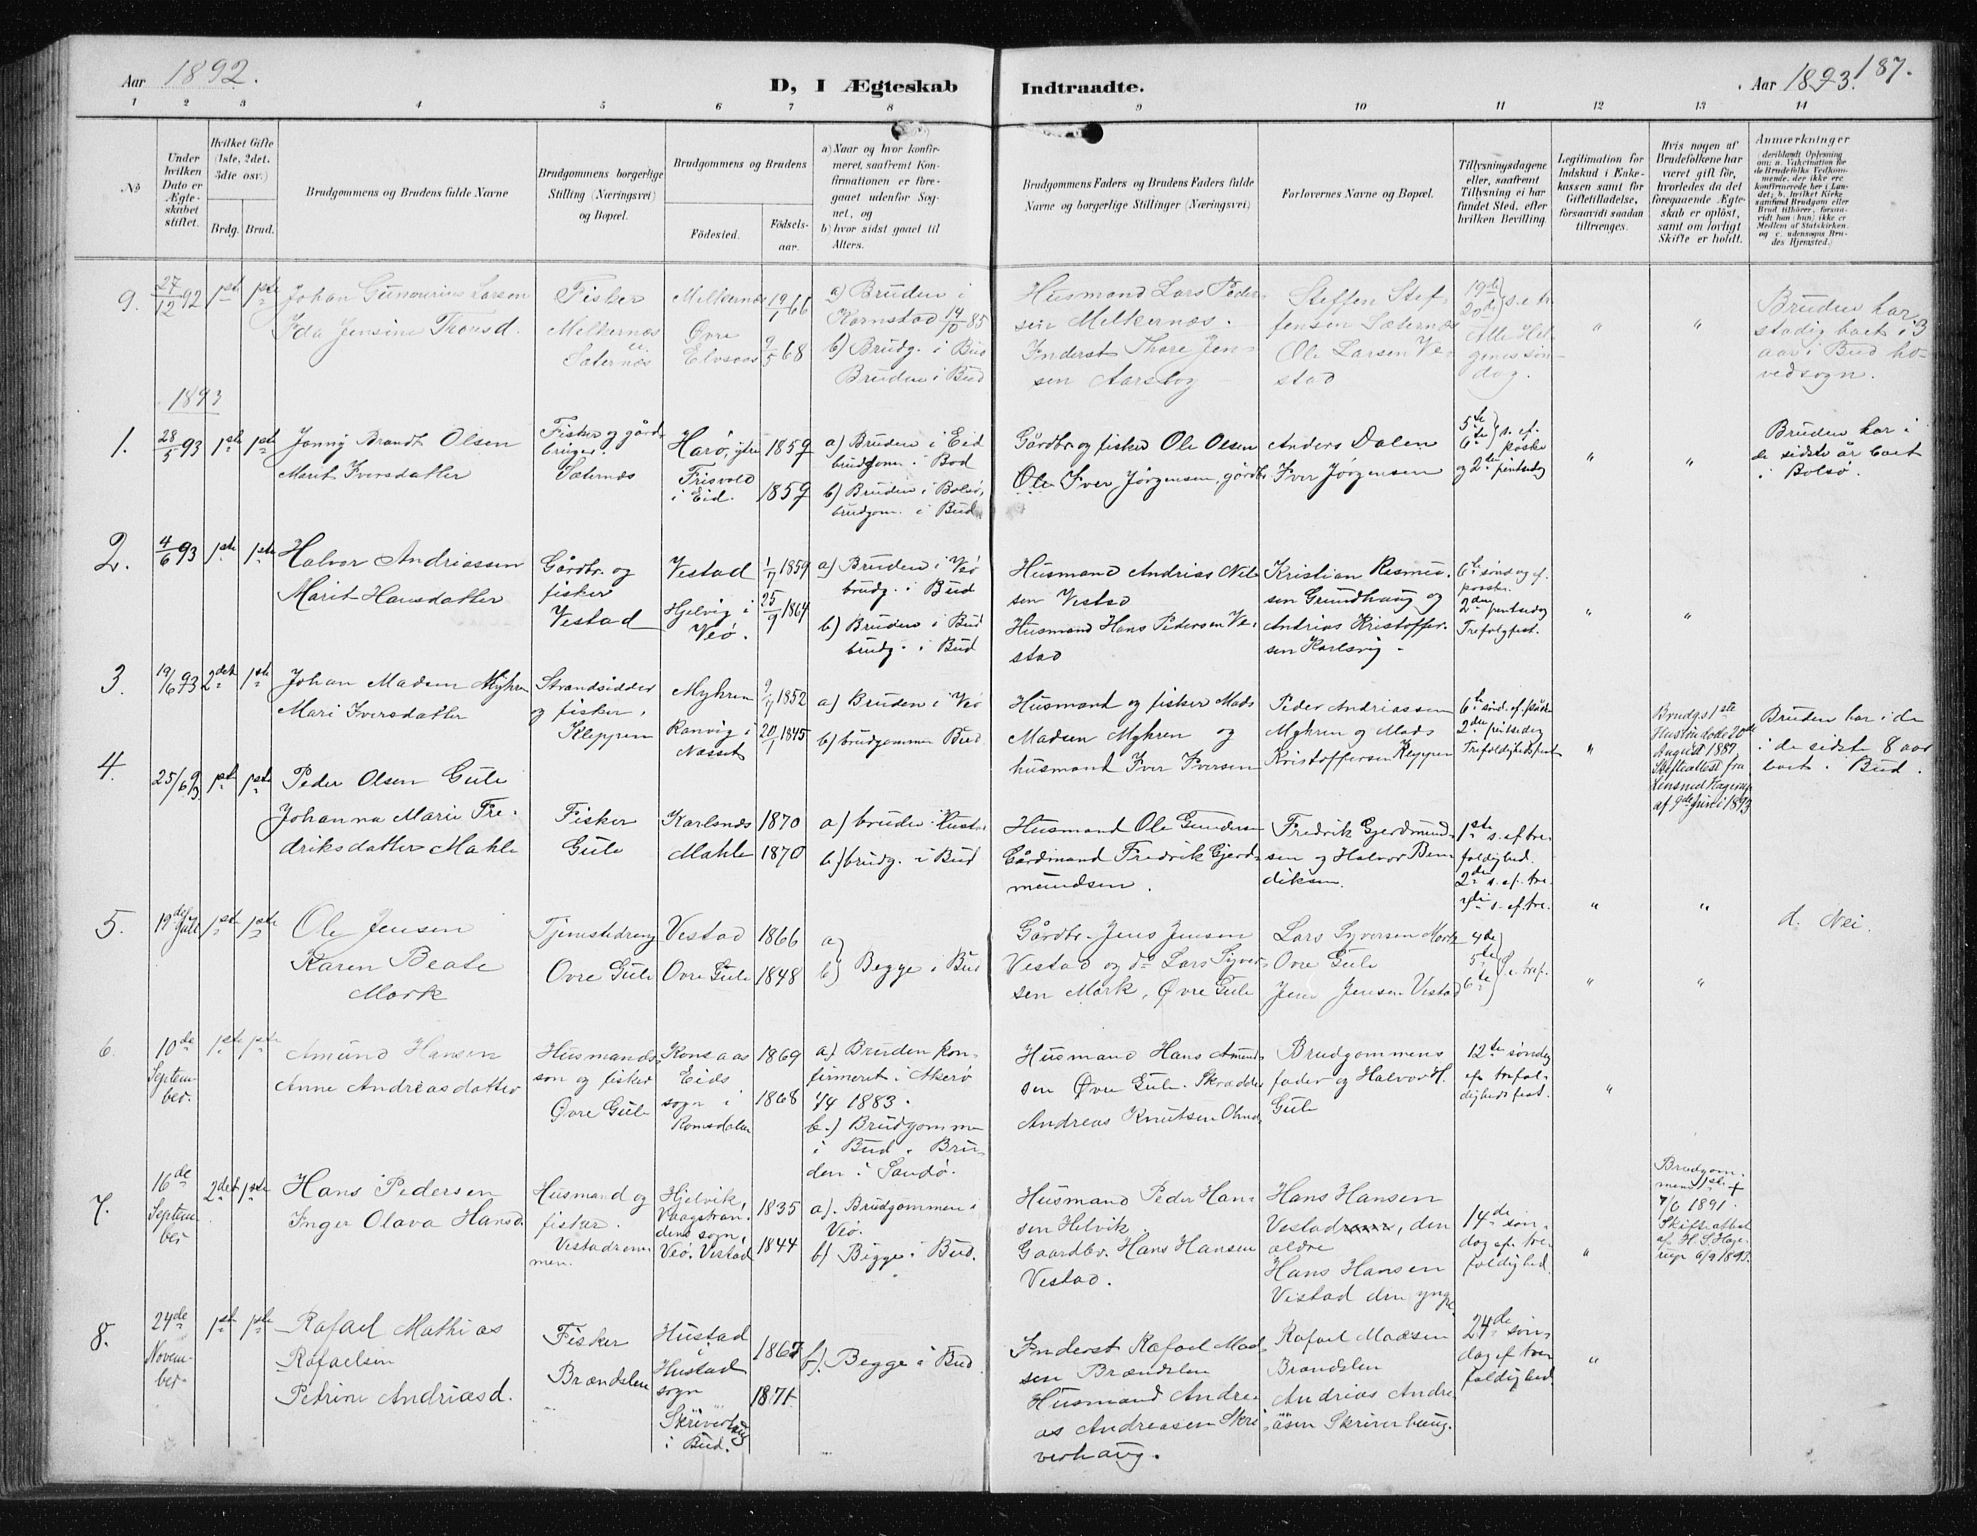 Aar 1892.
D, I Ægteskab Indtraadte.
Aar 1893. 187.
1 2 3 4 5 6 7 8 9 10 11 12 13 14
No
Under hvilken Dato er Ægteskabet stiftet.
Hvilket Gifte (1ste, 2det. 3die osv.)
Brdg. Brud.
Brudgommens og Brudens fulde Navne
Brudgommens borgerlige Stilling (Næringsvei) og Bopæl.
Brudgommens og Brudens
Fødested.
Fødselsaar.
a) Naar og hvor konfirmeret, saafremt Konfirmationen er foregaaet udenfor Sognet, og
b) hvor sidst gaaet til Alters.
Brudgommens Faders og Brudens Faders fulde Navne og borgerlige Stillinger (Næringsvei)
Forlovernes Navne og Bopæl.
Tillysningsdagene eller, saafremt Tillysning ei har fundet Sted, efter hvilken Bevilling.
Legitimation for Indskud i Enkekassen samt for Giftetilladelse, forsaavidt saadan tiltrænges.
Hvis nogen af Brudefolkene har været gift før, hvorledes da det foregaaende Ægteskab er opløst, samt om lovligt Skifte er holdt.
Anmerkninger
(deriblandt Oplysning om: a. Vakcination for de Brudefolks Vedkommende, der ikke ere konfirmerede her i Landet; b. hvilket Kirkesamfund Brudgom eller Brud tilhører, forsaavidt han (hun) ikke er Medlem af Statskirken, og c. udensogns Brudes Hjemsted.)
9. 27/12 92 1ste 1ste
Johan Gunnerius Larsen
Ida Jensine Thoresd.
Fisker
Melkernæs
Sæternæs
Melkernæs 19/1 66
Øvre Elvsaas 9/5 68
a) Bruden i
Kornstad 85
b) Brudg. i Bud
Bruden i Bud
Husmand Lars Peder-
sen Melkernæs.
Inderst Thore Jen-
sen Aarsbog
Steffen Stef-
fensen Sæternæs
Ole Larsen Ve-
stad
19de
20de } s.e.tr.
Alle Hel-
genes søn-
dag.
" "
Bruden har
stadig boet i 3
aar i Bud ho-
vedsogn.
1893
1. 28/5 93 1ste 1ste
Jonny Brandt Olsen
Marit Iversdatter
Fisker og gård-
bruger.
Sæternæs
Harø, ytre 1859
Frisvold
i Eid. 1859
a) Bruden i Eid
brudgom. i Bod
b) Bruden i Bolsø,
brudgom. i Bud
Gårdbr. og fisker Ole Olsen
Ole Iver Jørgensen, gårdbr.
Anders Dalen
Iver Jørgensen
5te
6te } s. ef. påske
og 2de pintsedag
" "
Bruden har i
de sidste år boet
i Bolsø.
2. 4/6 93 1ste 1ste
Halvor Andriassen
Marit Hansdatter
Gårdbr. og
fisker
Vestad
Vestad 1859
Hjelvig i
Veø. 25/9 1864
a) Bruden i Veø
brudg. i Bud
b) Bruden i Bud
brudg. i Bud
Husmand Andrias Niel-
sen Vestad
Husmand Hans Pedersen Ve-
stad
Kristian Rasmus-
sen Grundhaug og
Andrias Kristoffer-
sen Karlsvig.
6te sønd og ef.
påske.
2den pintsedag
Trefoldfest.
" "
3. 19/6 93 2det 1ste
Johan Madsen Myhren
Mari Iversdatter
Strandsidder
og fisker,
Kleppen
Myhren 1852
Ranvig i
Nesset 20/1 1845
a) Bruden i Veø
b) brudgommen Bud
Husmand og fisker Mads
Madsen Myhren og
husmand Iver Iversen
Peder Andriassen
Myhren og Mads
Kristoffersen Kleppen
6te sønd. ef. påske
2den pintsedag
Trefoldighedsfest
"
Brudgs 1ste
Hustru døde 20de
August 1887.
Skifteattest fra
Lensmd Hagerup
af 9de Juni 1893
Bruden har i de
i de sidste 8 aar
boet i Bud.
4. 25/6 93 1ste 1ste
Peder Olsen Gule
Johanna Marie Fre-
driksdatter Mahle
Fisker
Gule
Karlsnæs 1870
Mahle 1870
a) bruden Hustad
b) brudg. i Bud
Husmand Ole Gundersen
Gårdmand Fredrik Gjerd-
mundsen.
Fredrik Gjerdmund-
sen og Halvor Ben-
diksen.
1ste s. ef. tre-
foldighed.
2den s. ef. tre.
3die s. ef. tre.
" "
5. 19de Juli 1ste 1ste
Ole Jensen
Karen Beate
Mork
Tjenestedreng
Øvre Gule
Vestad 1866
Øvre Gule 1848
a)
b) Begge i Bud
Gårdbr. Jens Jensen
Vestad og do Lars Syver-
sen Mork, Øvre Gule
Lars Syversen Mork
Øvre Gule
Jens Jensen Vestad
4de
5te } s. e. tref.
6te
" "
d. Nei.
6. 10de
Septem-
ber. 1ste 1ste
Amund Hansen
Anne Andreasdatter
Husmands-
søn og fisker
Øvre Gule
Konsaas 1869
Eids
sogn i
Romsdalen 1868
a) Bruden kon-
firmeret i Akerø
1883.
b.) Brudgommen
i Bud. Bru-
den i Sandø.
Husmand Hans Amund-
sen Øvre Gule. Skrædder
Andreas Knutsen
Brudgommens
fader og Halvor H.
Gule
12te søndag
ef. trefol-
dighedsfest.
"
7. 16de
Septem-
ber 2det 1ste
Hans Pedersen
Inger Olava Hansd.
Husmand og
fisker.
Vestadrem-
men.
Hjelvik,
Vaagstran-
dens sogn,
Veø. Vestad 1835
1844
a). Brudgommen i
Veø.
b) Begge i Bud.
Husmand Peder Han-
sen Helvik.
Gaardbr. Hans Hansen
Vestad.
Hans Hansen
Vestad, den
ældre
Hans Hansen
Vestad den yngre
14de søn-
dag ef. tre-
foldighed.
"
Brudgom-
mens 1ste +
7/6 1891.
Skifteattest
af H. S. Hage-
rup
8. 24de
Novem-
ber 1ste 1ste
Rafael Mathias
Rafaelsen
Petrine Andriasd.
Fisker
Brændslen
Hustad
i
Hustad
sogn
Skriverhaug
i Bud. 1867
1871
b). Begge i Bud.
Inderst Rafael Mad-
sen Brændslen
Husmand Andre-
as Andreasen Skri-
verhaug.
Rafael Madsen
Brændslen
Andrias Andre-
asen Skriverhaug.
24de søn-
dag ef. tre-
foldighed.
"